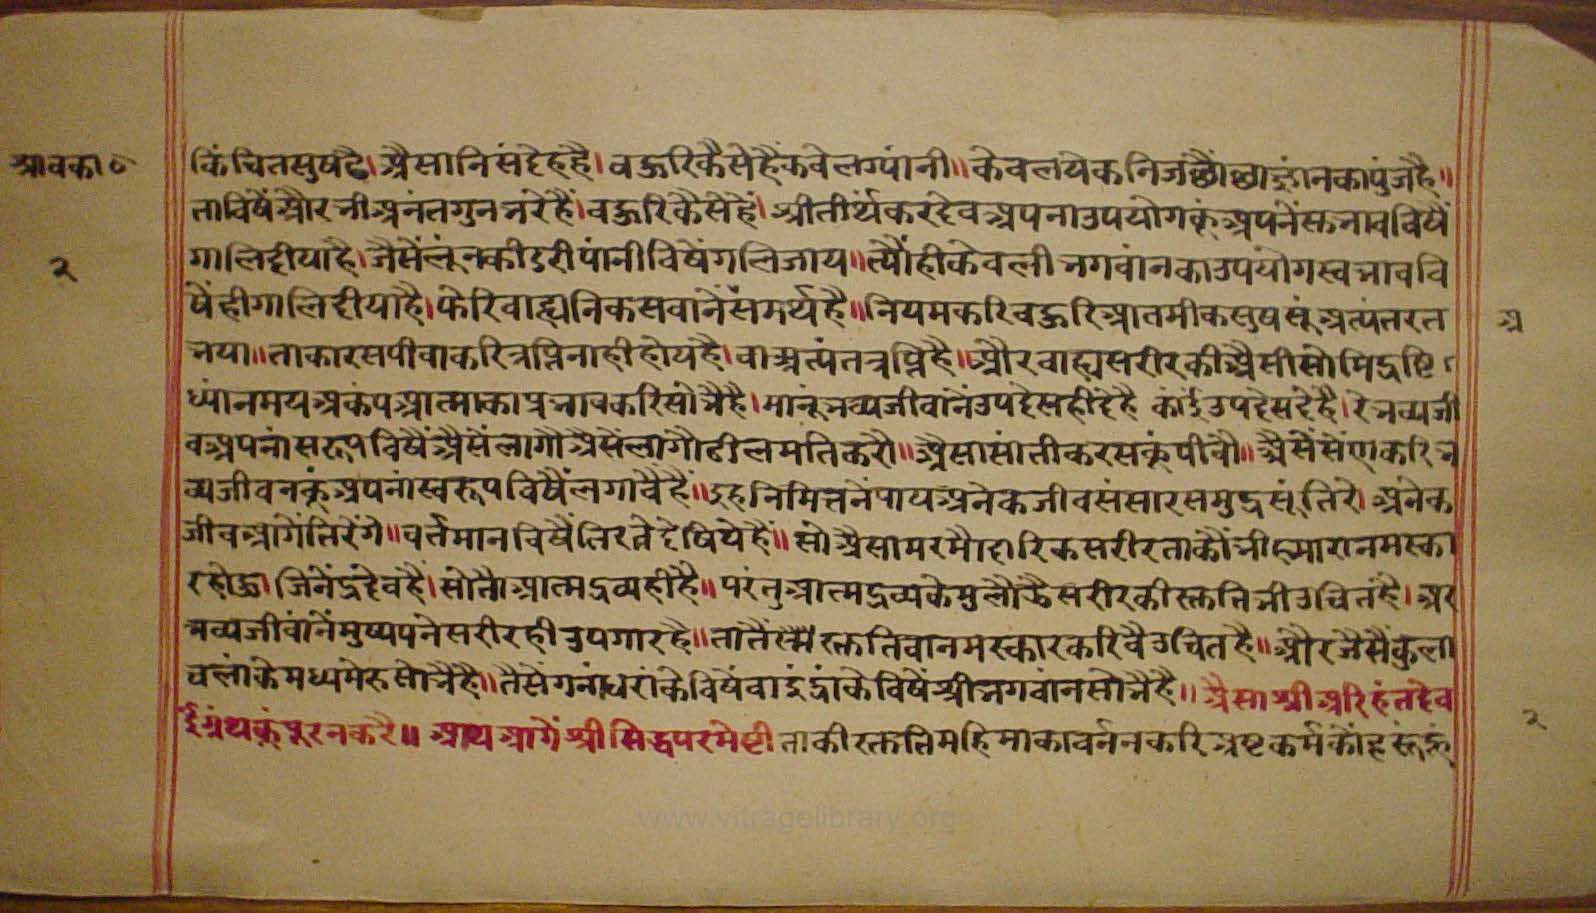 श्रावका०
किंचितसुषहै।ऐसानिसंदेहहै।बहुरिकैसेहैकेवेलग्यांनी॥केवलयेकनिज ग्यांनकापुंजहै॥
ताविषेंऔरभीअनंतगुनभरेहैं।बहुरिकैसेहें।श्रीतीर्थंकरदेवअपनाउपयोगकूंअपनेंस्वभावविषें
२
गालिदीयाहै।जैसेंलूंनकीडरीपांनीविषेंगलिजाय॥त्यौंहीकेवलीभगवांनकाउपयोगस्वभाववि
षेंहीगालिदीयाहै।फेरिवाह्यनिकसवानेंसमर्थहै॥नियमकरिबहुरिआतमीकसुषसूंअत्यंतरत
भया॥ताकारसपीवाकरित्रप्तिनाहीहोयहै।वाअत्यंतत्रप्तिहै॥औरवाह्यसरीरकीऐसीसोमिद्रष्टि
ध्यांनमयअकंपआत्माकाप्रभावकरिसोभैहै।मानूंभव्यजीवांनेंउपदेसहीदेहै कांईउपदेसदेहै।रेभव्यजी
वअपनांसरूपविषेंऐसेंलागौऐसेंलागौढीलमतिकरौ॥ऐसासांतीकरसकूंपीवौ॥ऐसेंसेंणकरिभ
व्यजीवनकूंअपनांस्वरूपविषैंलगावैहैं॥इहनिमित्तनेंपायअनेकजीवसंसारसमुद्रसूंतिरे।अनेक
जीवआगेंतिरेंगे॥वर्तमानविषैंतिरतेदेषियेहैं॥सोऐसा सरीरताकौंभीह्मारानमस्का
रहोहु।जिनेंद्रदेवहै।सोतौआत्मद्रव्यहीहै॥परंतुआत्मद्रव्यके सरीरकीस्तुतिभीउचितहै।अर
भव्यजीवांनेंमुष्यपनेसरीरहीउपगारहै॥तातैं स्तुतिवानमस्कारकरिवैउचितहै॥औरजैसैंकुला
चलांकेमध्यमेरुसोभैहै॥तैसेंगनांधरांकेविषेंवाइंद्रांकेविषेंश्रीभगवांनसोभैहै॥ऐसाश्रीअरिहंतदेव
ईग्रंथकूंपूरनकरै॥आथआगेंश्रीसिद्धपरमेष्टीताकीस्तुतिमहिमाकावर्ननकरिअष्टकर्मकौं
२